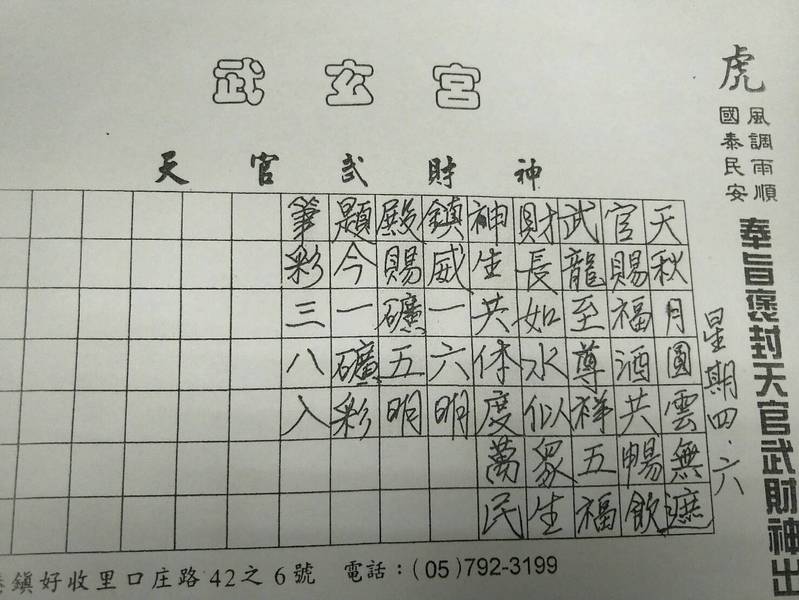 武玄宮
天官武財神
虎
風調雨順
國泰民安
奉旨褒封天官武財神出
星期四.六
天秋月圓雲無遮
官賜福酒共暢飲
武龍至尊祥五福
財長如水似眾生
神生共体度萬民
鎮威一六明
殿賜礦五明
題今一礦彩
筆彩三八入
鎮好收里口庄路42之6號 電話：(05)792-3199